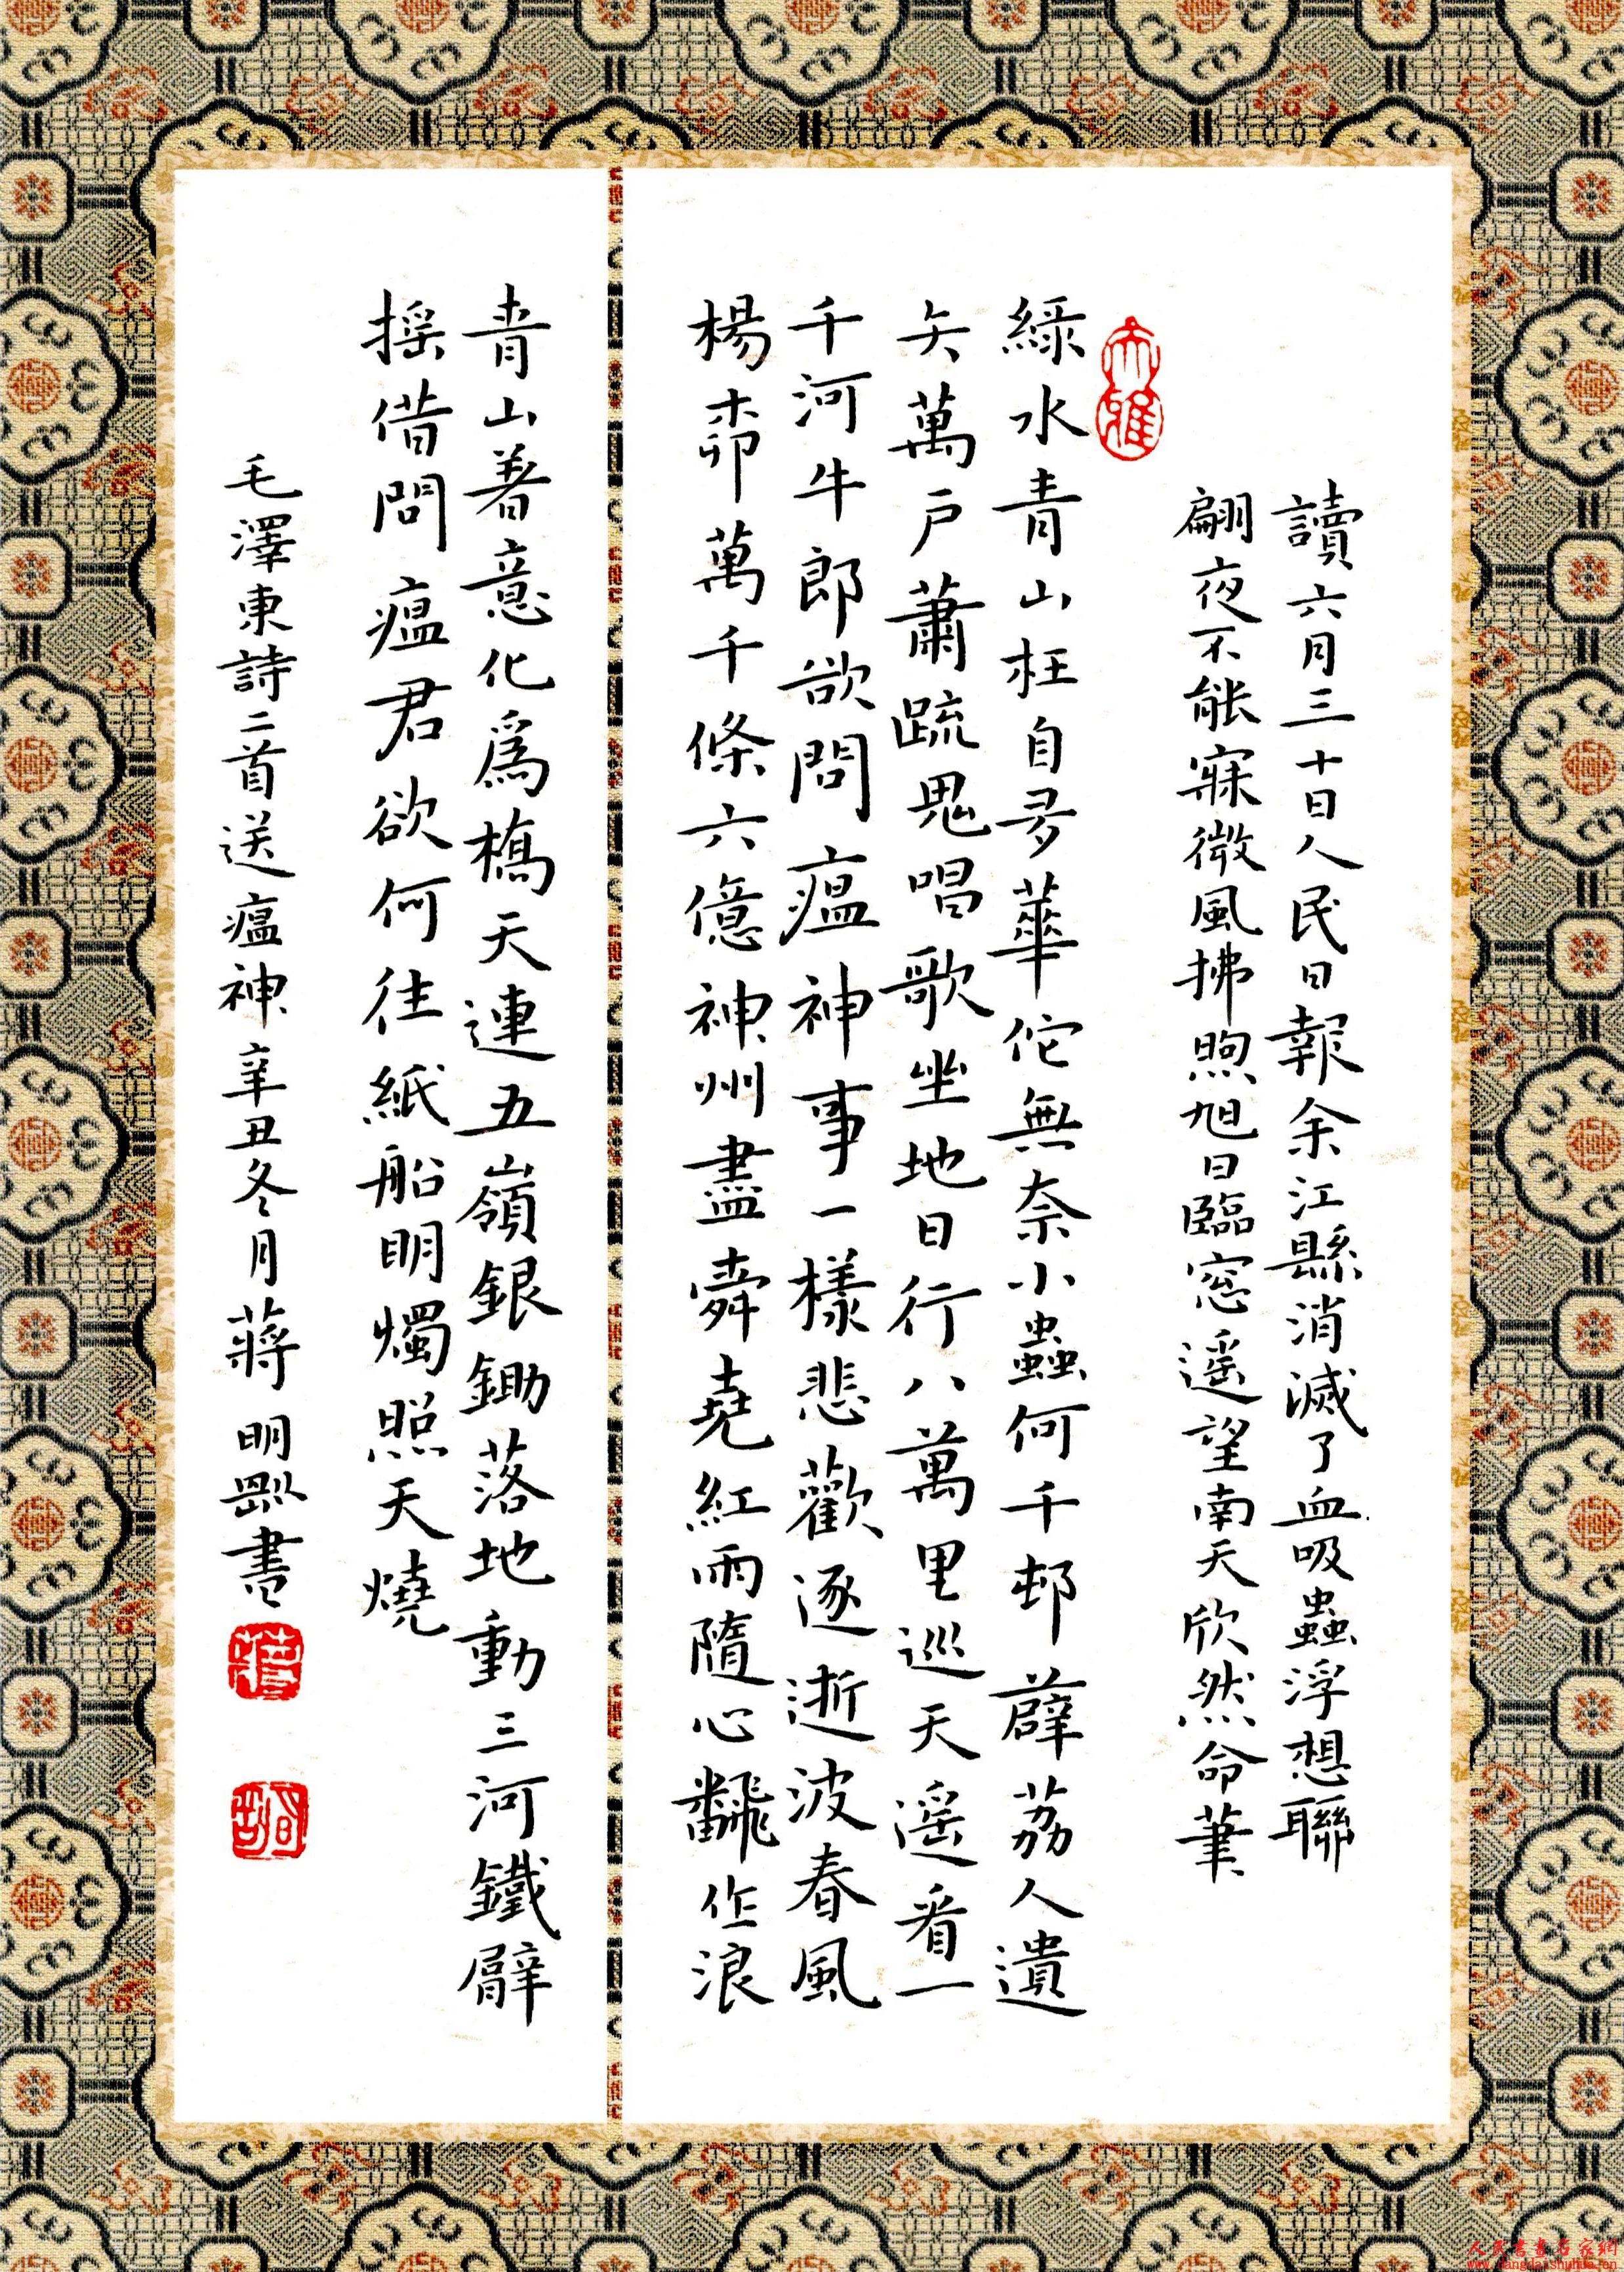 讀六月三十日人民日報余江縣消滅了血吸蟲浮想聯
翩夜不能寐微風拂煦旭日臨窓遥望南天欣然命筆
大雅
綠水青山枉自多華佗無奈小蟲何千邨薜荔人遺
矢萬戶蕭疏鬼唱歌坐地日行八萬里巡天遥看一
千河牛郎欲問瘟神事一樣悲歡逐逝波春風
楊柳萬千條六億神州盡舜堯紅雨隨心飜作浪
青山著意化爲橋天連五嶺銀鋤落地動三河鐵臂
摇借問瘟君欲何往紙船明燭照天燒
毛澤東詩二首送瘟神辛丑冬月蔣明書
人民書畫名家網
www.dangdaishuhua.cn